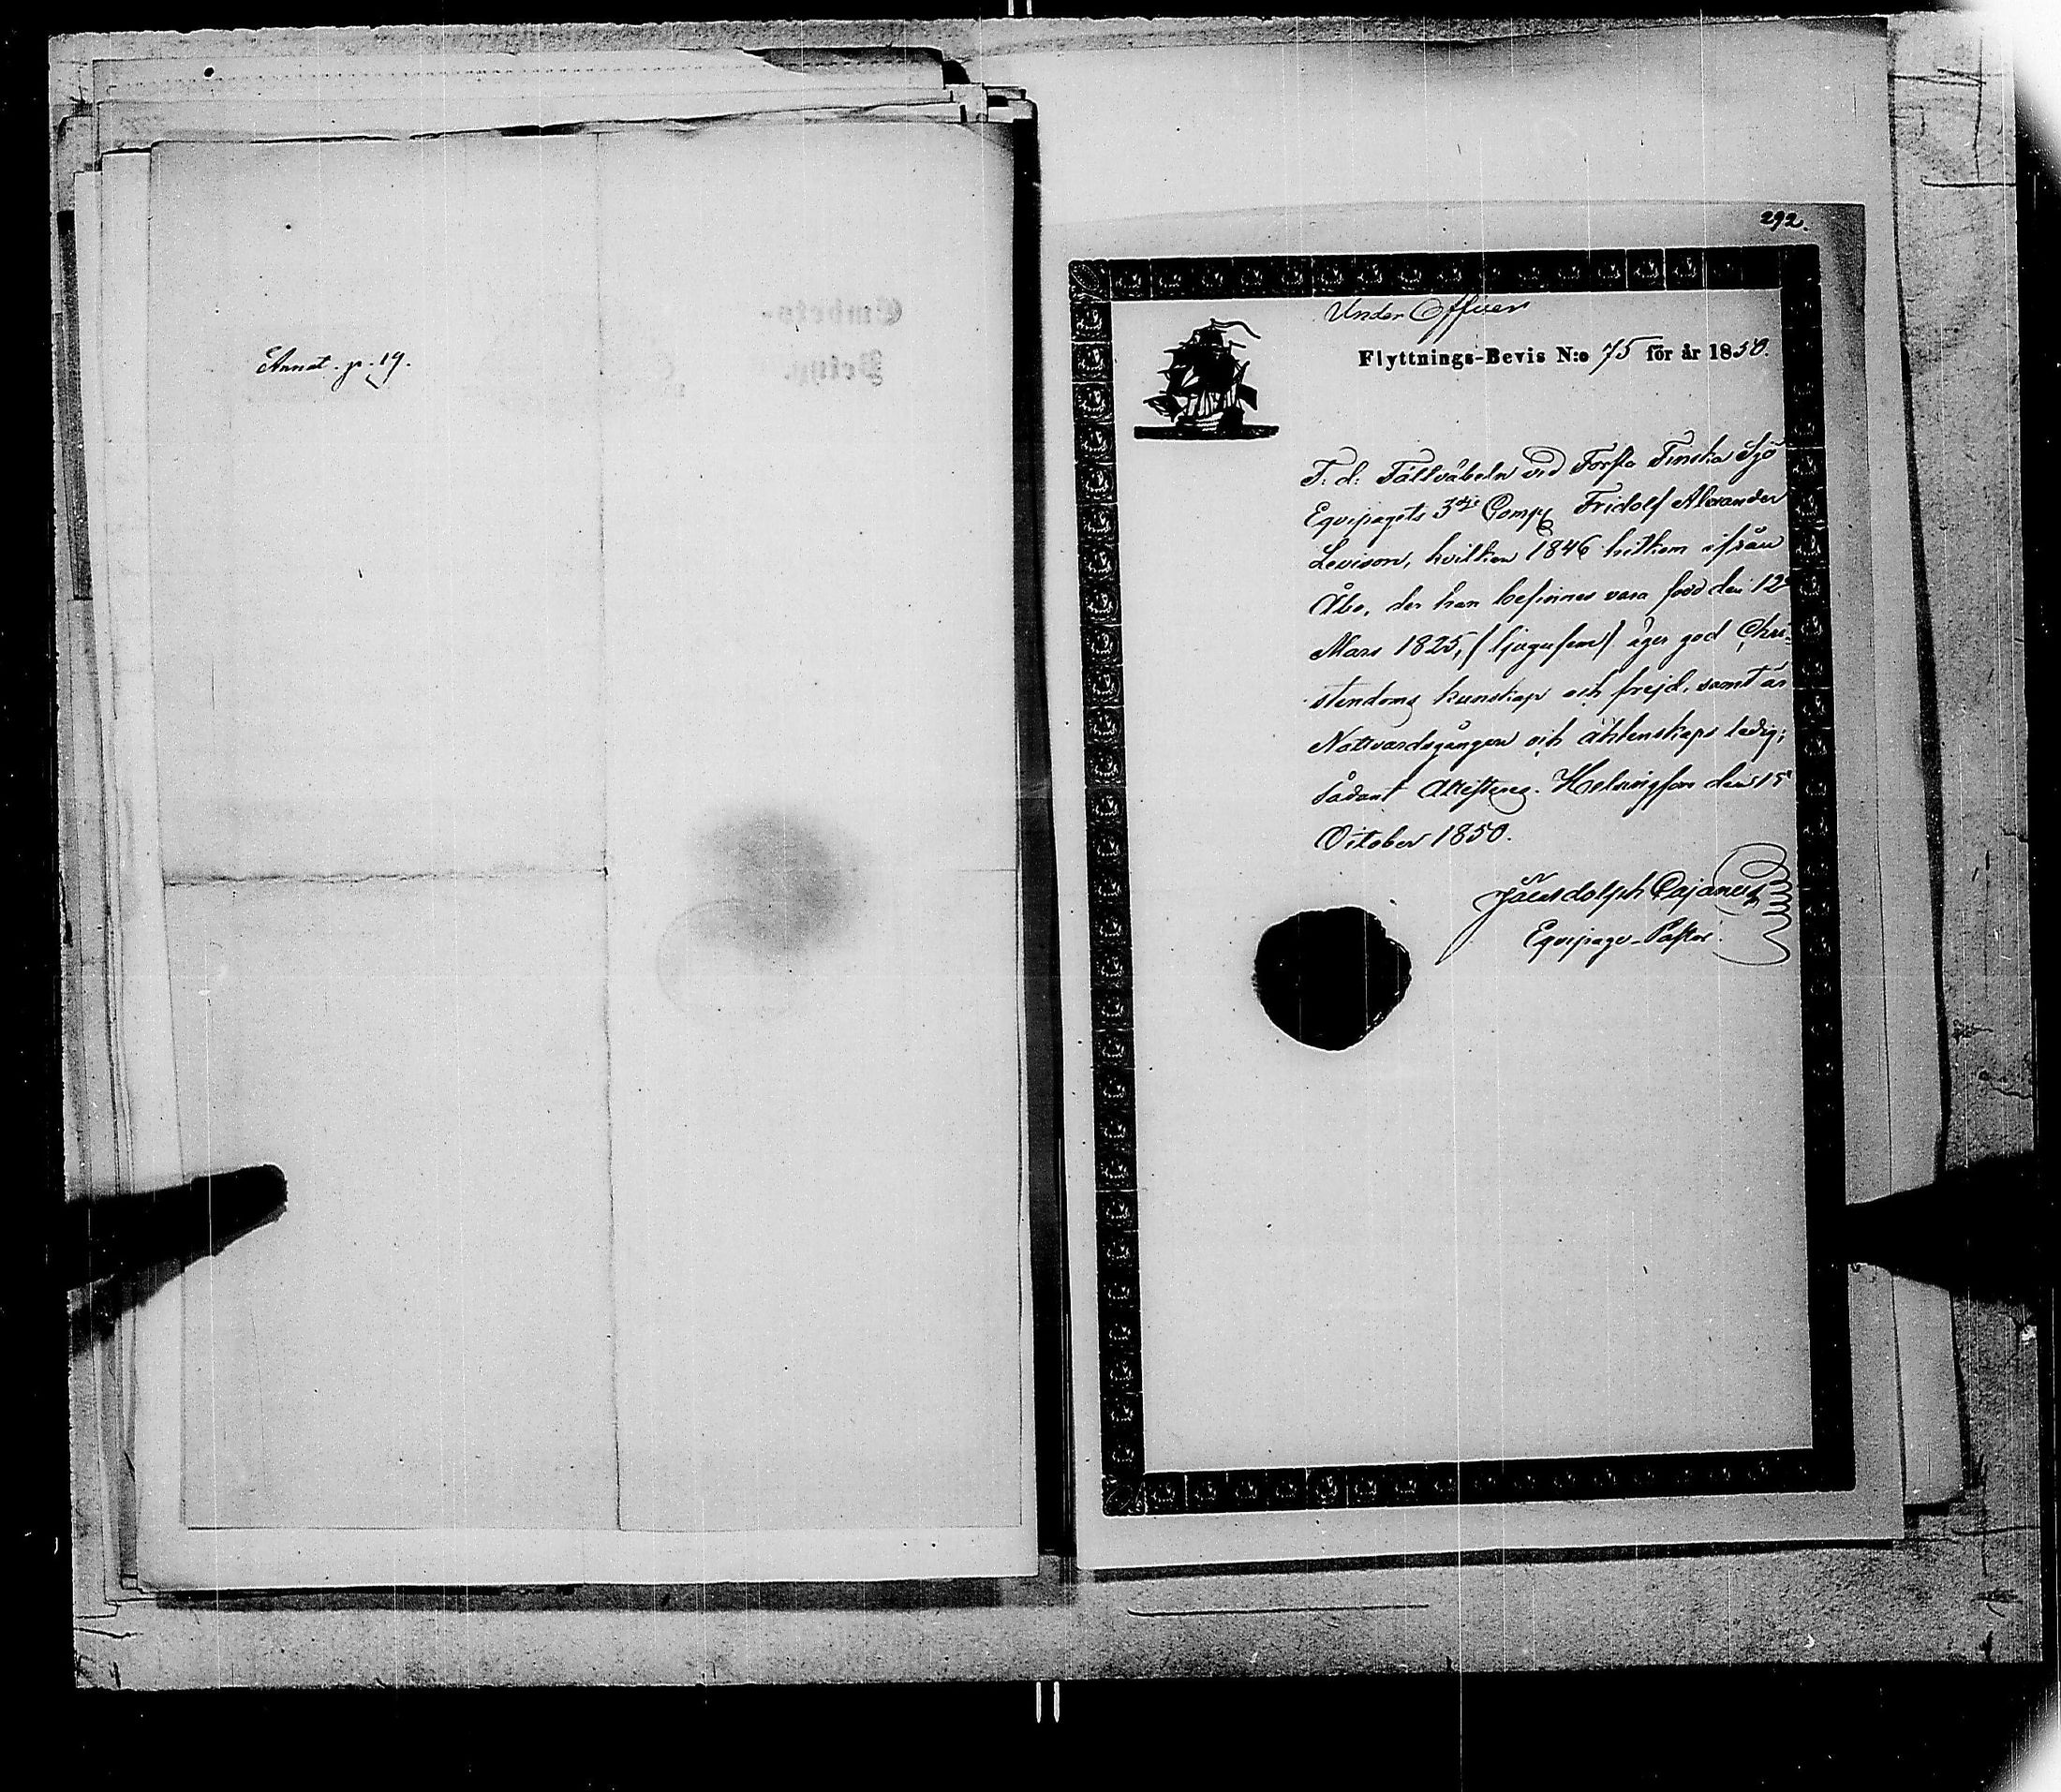 Annot. p. 19.
292.
Under Officer
Flyttnings-Bevis N:o 75 för år 1850.
F: d: Fältväbeln vid Första Finska Sjö
Equipagets 3dje Comp: Fridolf Alexander
Levison, hvilken 1846 hitkom ifrån
Åbo, der han befinnes vara född den 12
Mars 1825, (tjugufem) äger god Chri-
stendoms kunskap och frejd, samt är
Nattvardsgången och äktenskaps ledig;
Sådant Attesteras. Helsingfors den 15
October 1850.
Cajanus
Equipage-Pastor.